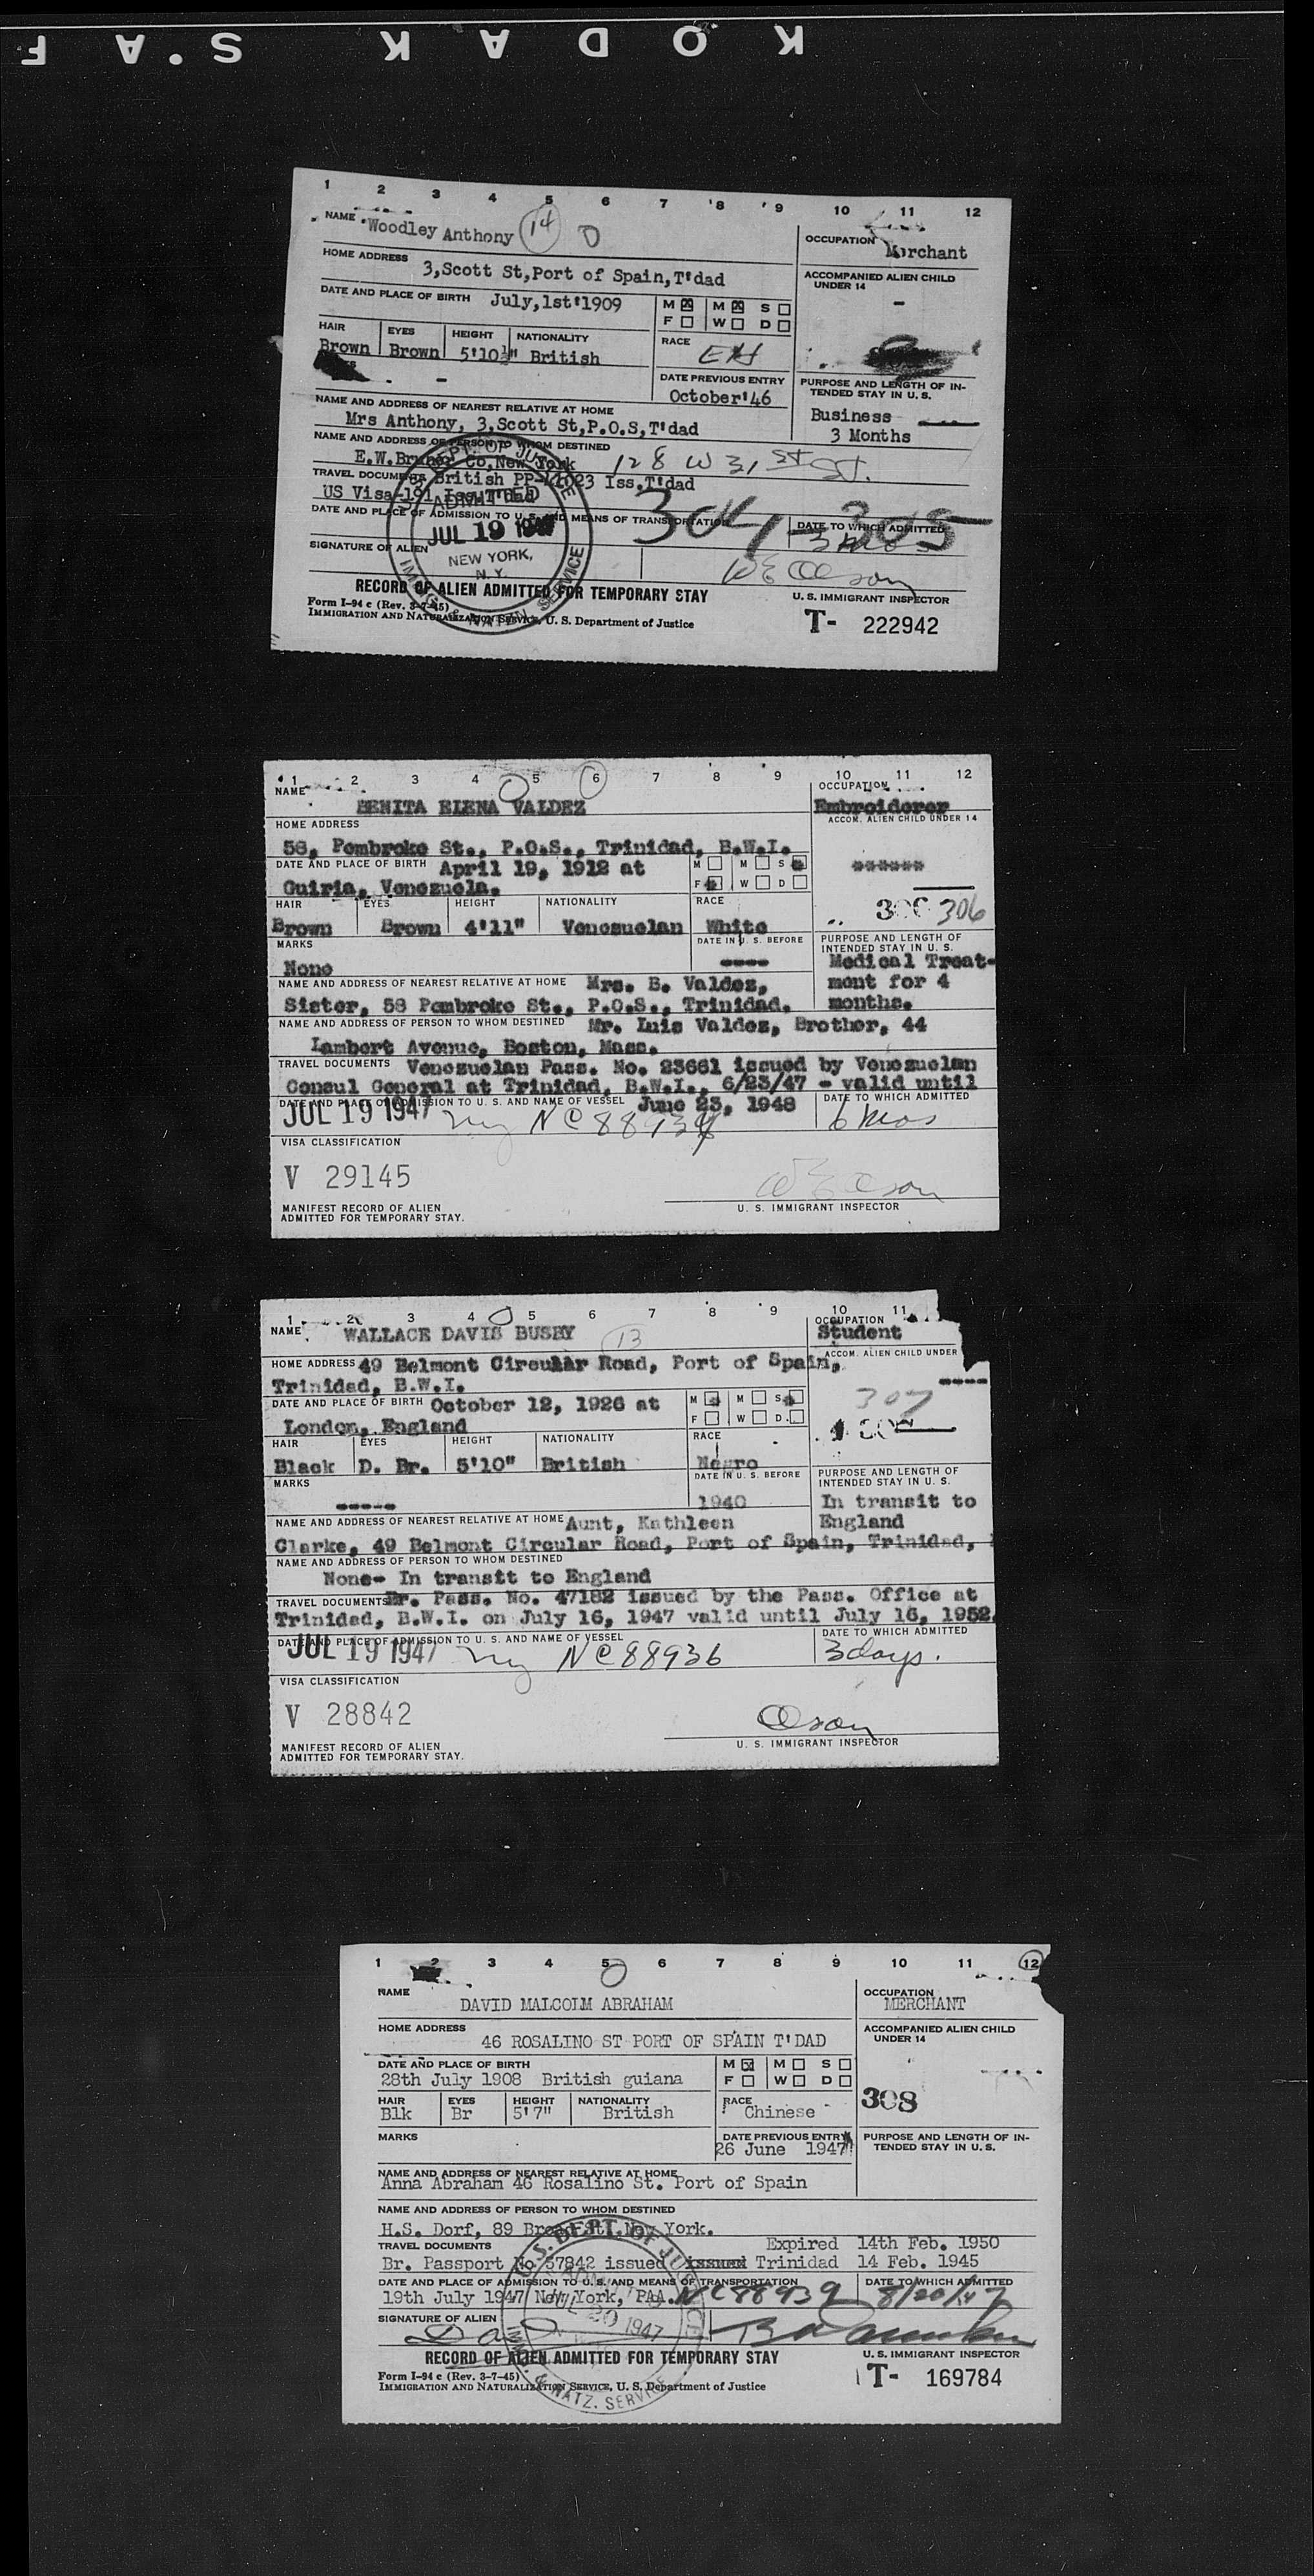 KODAK S'AF
1 2 3 4 5 6 7 8 9 10 11 12
NAME Woodley Anthony 14
OCCUPATION Merchant
HOME ADDRESS 3,Scott St,Port of Spain,T'dad
ACCOMPANIED ALIEN CHILD UNDER 14 -
DATE AND PLACE OF BIRTH July,1st'1909
M F M W S D
HAIR EYES HEIGHT NATIONALITY RACE
Brown Brown 5'10½" British
DATE PREVIOUS ENTRY
October'46
PURPOSE AND LENGTH OF INTENDED STAY IN U. S.
Business
3 Months
NAME AND ADDRESS OF NEAREST RELATIVE AT HOME
Mrs Anthony, 3,Scott St,P.O.S,T'dad
NAME AND ADDRESS OF PERSON TO WHOM DESTINED
Co,New York 128 W 31 St St.
TRAVEL DOCUMENTS British Iss.T'dad
US Visa-191 Iss.T'dad
304-305
DATE AND PLACE OF ADMISSION TO U. S. AND MEANS OF TRANSPORTATION
DATE TO WHICH ADMITTED
3 mos
DEPT. OF JUSTICE ADMITTED JUL 19 1947 NEW YORK, N.Y. IMMIG. & NATZN. SERVICE
SIGNATURE OF ALIEN
RECORD OF ALIEN ADMITTED FOR TEMPORARY STAY
U. S. IMMIGRANT INSPECTOR
Form I-94 c (Rev. 3-7-45)
IMMIGRATION AND NATURALIZATION SERVICE, U. S. Department of Justice
T- 222942
1 2 3 4 5 6 7 8 9 10 11 12
NAME BENITA ELENA VALDEZ
OCCUPATION Embroiderer
HOME ADDRESS
ACCOM. ALIEN CHILD UNDER 14
58, Pembroke St., P.O.S., Trinidad, B.W.I.
DATE AND PLACE OF BIRTH April 19, 1912 at
Guiria, Venezuela.
M F M W S D
HAIR EYES HEIGHT NATIONALITY RACE
306 306
Brown Brown 4'11" Venezuelan White
MARKS
DATE IN U. S. BEFORE
PURPOSE AND LENGTH OF INTENDED STAY IN U. S.
None
Medical Treatment for 4 months.
NAME AND ADDRESS OF NEAREST RELATIVE AT HOME Mrs. B. Valdez,
Sister, 58 Pembroke St., P.O.S., Trinidad.
NAME AND ADDRESS OF PERSON TO WHOM DESTINED Mr. Luis Valdez, Brother, 44
Lambert Avenue, Boston, Mass.
TRAVEL DOCUMENTS Venezuelan Pass. No. 23661 issued by Venezuelan
Consul General at Trinidad, B.W.I., 6/23/47 - valid until
DATE AND PLACE OF ADMISSION TO U. S. AND NAME OF VESSEL June 23, 1948
DATE TO WHICH ADMITTED
JUL 19 1947 ny 6 mos
VISA CLASSIFICATION
V 29145
MANIFEST RECORD OF ALIEN
ADMITTED FOR TEMPORARY STAY.
U. S. IMMIGRANT INSPECTOR
1 2 3 4 5 6 7 8 9 10 11
NAME WALLACE DAVIS BUSBY 13
OCCUPATION Student
HOME ADDRESS 49 Belmont Circular Road, Port of Spain,
ACCOM. ALIEN CHILD UNDER
Trinidad, B.W.I.
DATE AND PLACE OF BIRTH October 12, 1926 at
London, England
M F M W S D
307
HAIR EYES HEIGHT NATIONALITY RACE
Black D. Br. 5'10" British Negro
MARKS
DATE IN U. S. BEFORE
1940
PURPOSE AND LENGTH OF INTENDED STAY IN U. S.
In transit to England
NAME AND ADDRESS OF NEAREST RELATIVE AT HOME Aunt, Kathleen
Clarke, 49 Belmont Circular Road, Port of Spain, Trinidad,
NAME AND ADDRESS OF PERSON TO WHOM DESTINED
None- In transit to England
TRAVEL DOCUMENTS Br. Pass. No. 47182 issued by the Pass. Office at
Trinidad, B.W.I. on July 16, 1947 valid until July 16, 1952
DATE AND PLACE OF ADMISSION TO U. S. AND NAME OF VESSEL
DATE TO WHICH ADMITTED
JUL 19 1947 ny NC88936 3 days.
VISA CLASSIFICATION
V 28842
MANIFEST RECORD OF ALIEN
ADMITTED FOR TEMPORARY STAY.
U. S. IMMIGRANT INSPECTOR
1 2 3 4 5 6 7 8 9 10 11 12
NAME DAVID MALCOLM ABRAHAM
OCCUPATION MERCHANT
HOME ADDRESS
46 ROSALINO ST PORT OF SPAIN T'DAD
ACCOMPANIED ALIEN CHILD UNDER 14
DATE AND PLACE OF BIRTH
28th July 1908 British guiana
M F M W S D
HAIR EYES HEIGHT NATIONALITY RACE
Blk Br 5'7" British Chinese
308
MARKS
DATE PREVIOUS ENTRY
26 June 1947
PURPOSE AND LENGTH OF INTENDED STAY IN U. S.
NAME AND ADDRESS OF NEAREST RELATIVE AT HOME
Anna Abraham 46 Rosalino St. Port of Spain
NAME AND ADDRESS OF PERSON TO WHOM DESTINED
H.S. Dorf, 89 Broad St. New York.
TRAVEL DOCUMENTS Expired 14th Feb. 1950
Br. Passport No 57842 issued issued Trinidad 14 Feb. 1945
DATE AND PLACE OF ADMISSION TO U. S. AND MEANS OF TRANSPORTATION
DATE TO WHICH ADMITTED
19th July 1947 New York, PAA NC88939 8/20/47
U.S. DEPT. OF JUSTICE JUL 20 1947 IMM. & NATZ. SERVICE
SIGNATURE OF ALIEN
RECORD OF ALIEN ADMITTED FOR TEMPORARY STAY
U. S. IMMIGRANT INSPECTOR
Form I-94 c (Rev. 3-7-45)
IMMIGRATION AND NATURALIZATION SERVICE, U. S. Department of Justice
T- 169784